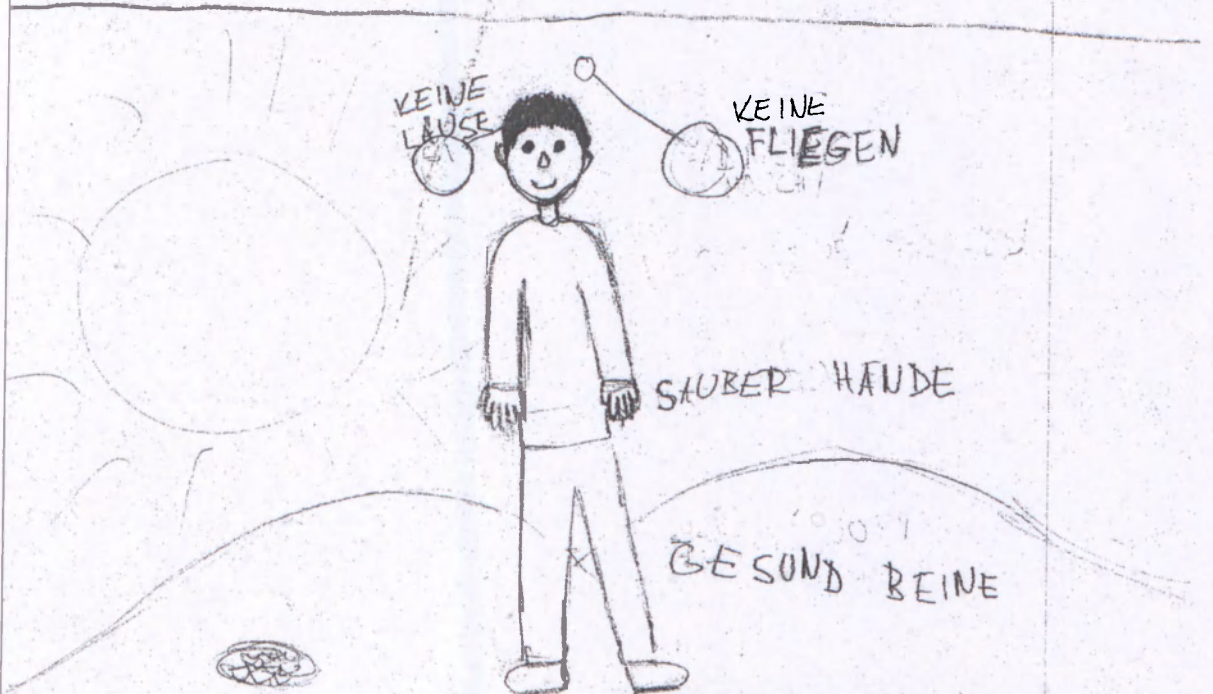 KEINE
LAUSE
KEINE
FLIEGEN
SAUBER HANDE
GESUND BEINE